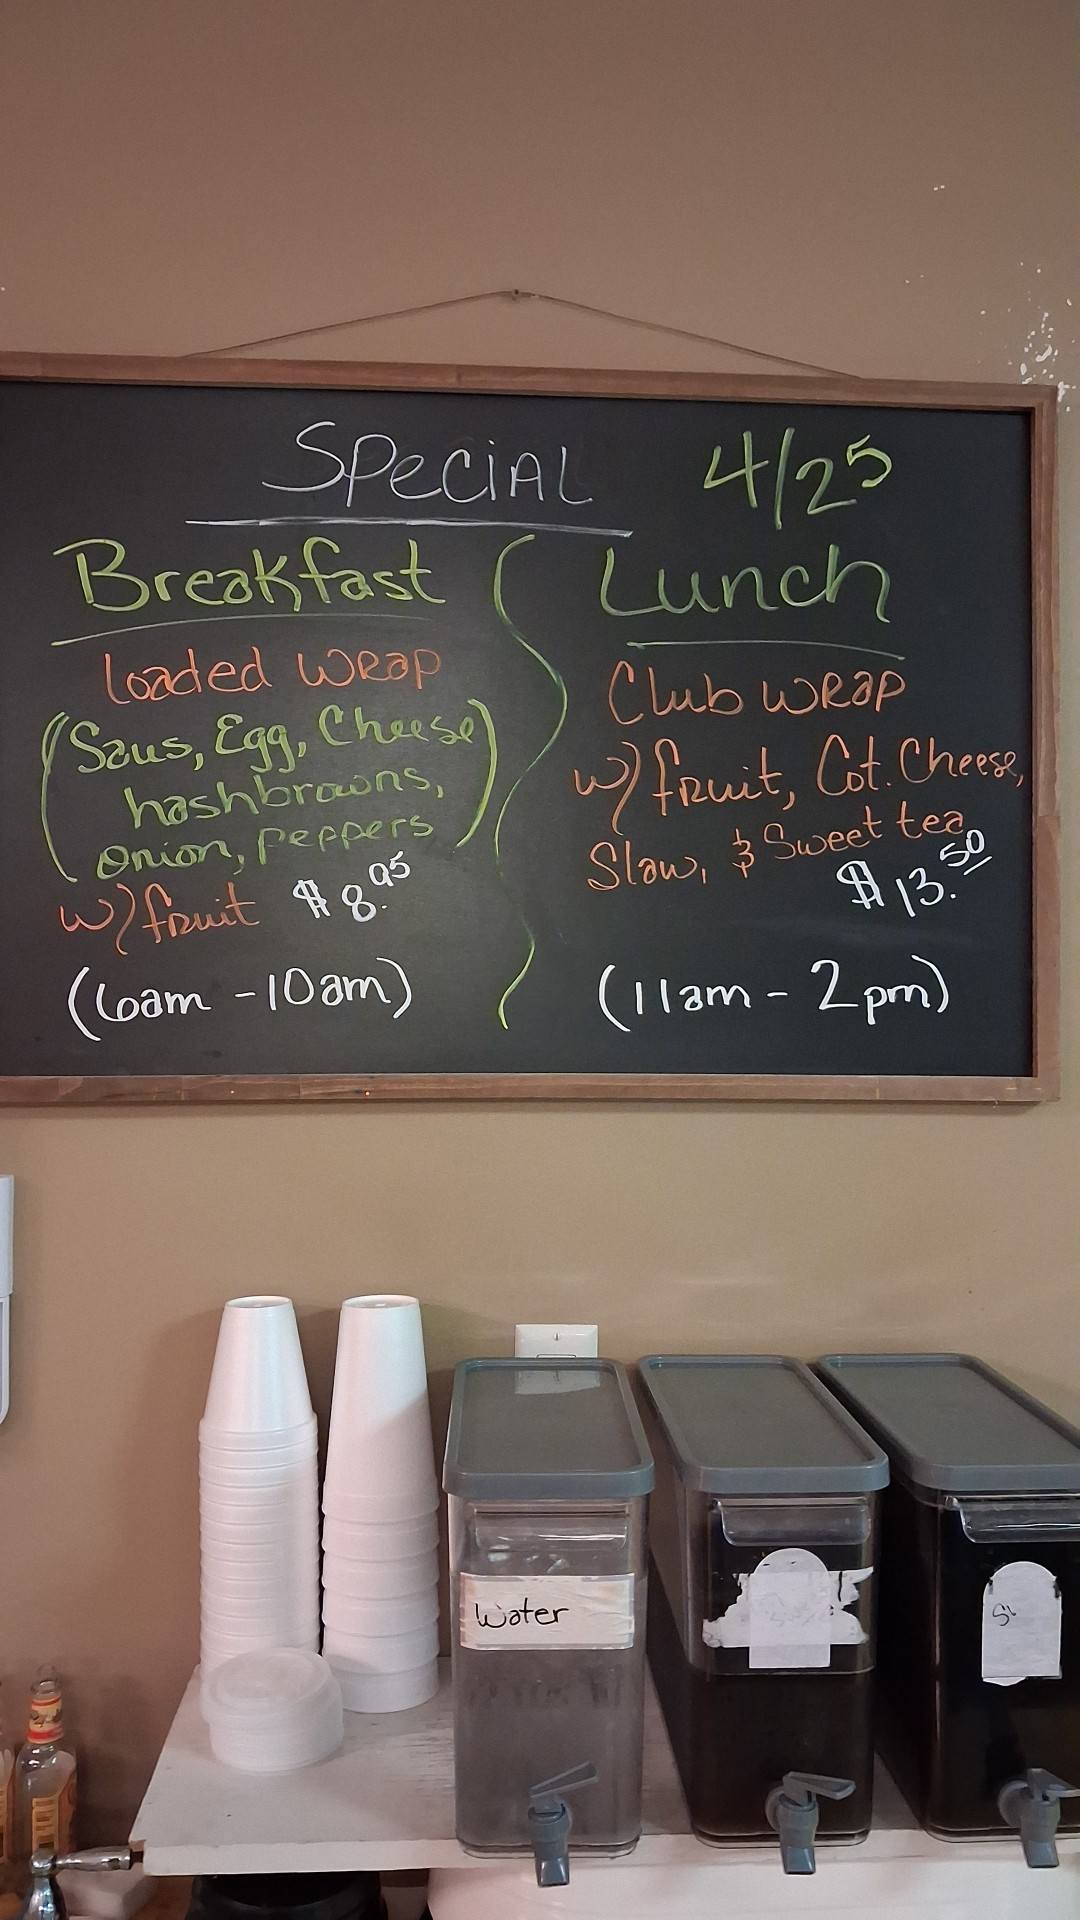 Special 4/25
Breakfast
Loaded Wrap
(Saus, Egg, Cheese
hashbrowns,
onion, peppers)
w/ fruit $8.95
(6am - 10am)
Lunch
Club Wrap
w/ fruit, Cot. Cheese,
Slaw, & Sweet tea
$13.50
(11am - 2pm)
Water